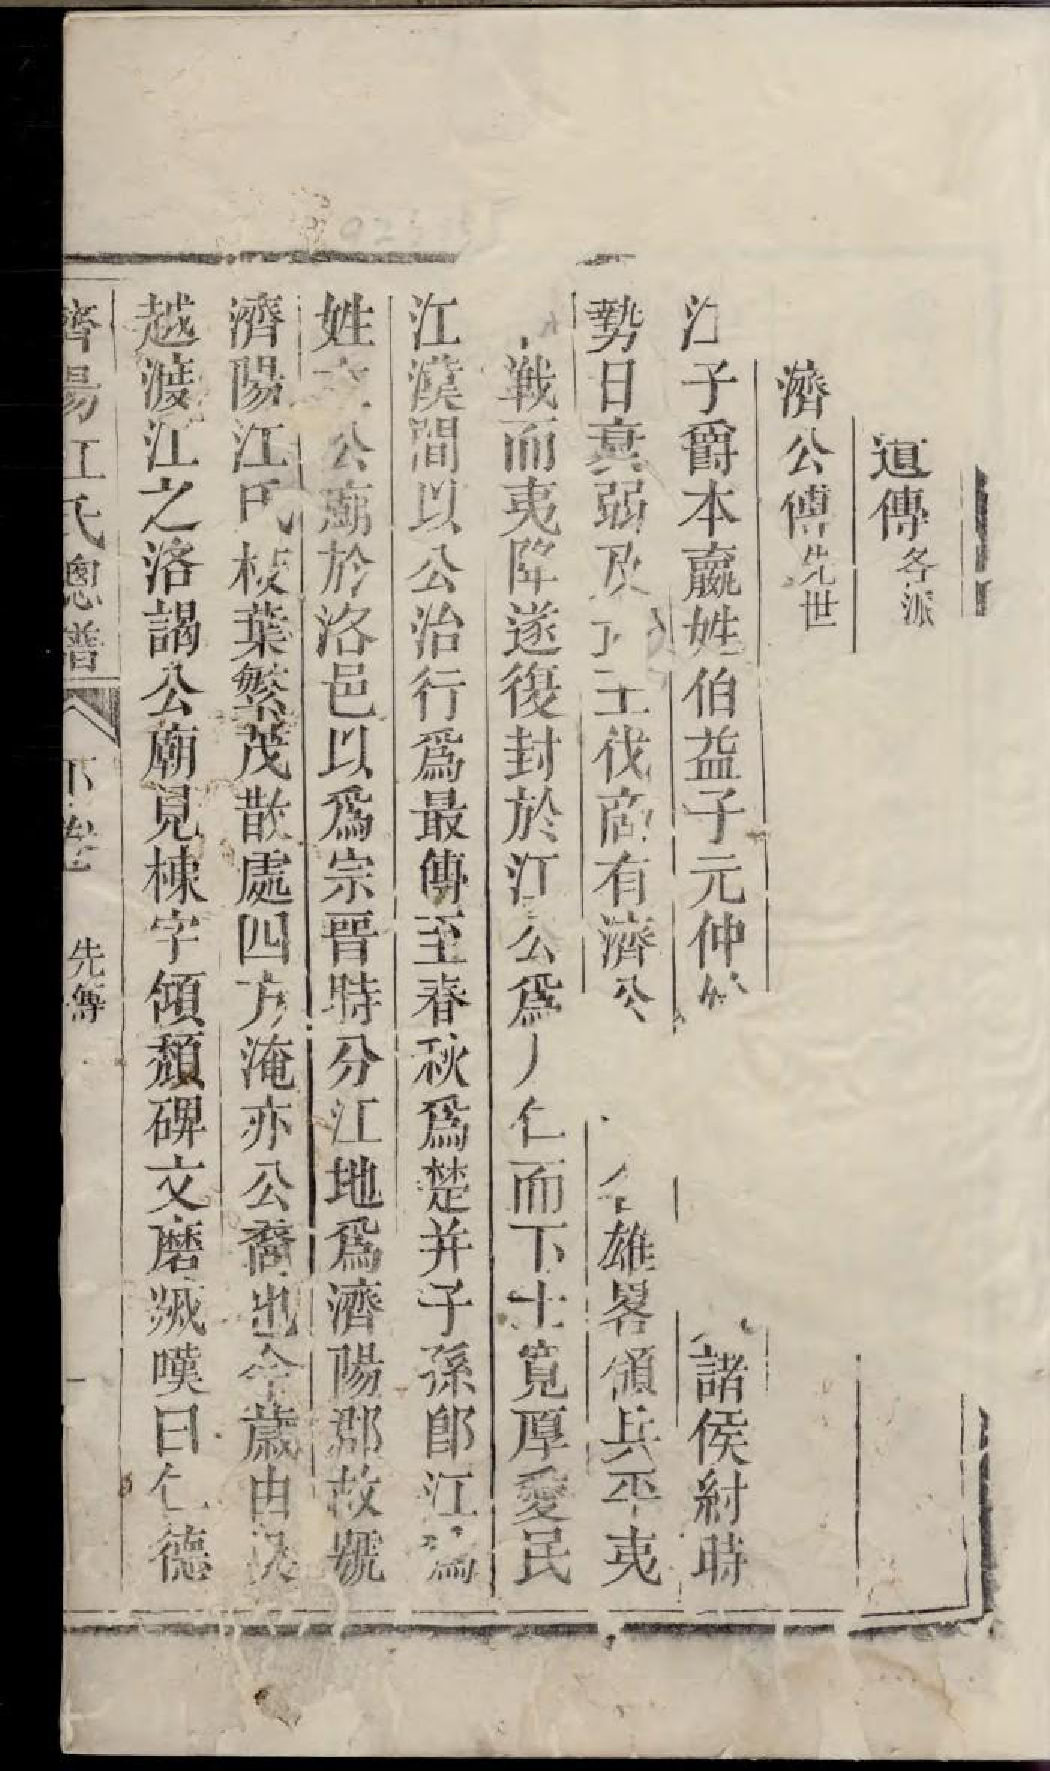 道傳各派
濟公傳先世
江子爵本嬴姓伯益子元仲 諸侯紂時
勢日衰弱及 王伐商有濟公 雄畧領兵平夷
戰而夷降遂復封於江公爲人仁而下士寬厚愛民
江漢間以公治行爲最傳至春秋爲楚并子孫卽江爲
姓立公廟於洛邑以爲宗晉時分江地爲濟陽郡故號
濟陽江氏枝葉繁茂散處四方淹亦公裔也今歲由
越渡江之洛謁公廟見棟宇傾頹碑文磨滅嘆曰仁德
濟陽江氏總譜 下卷 先傳